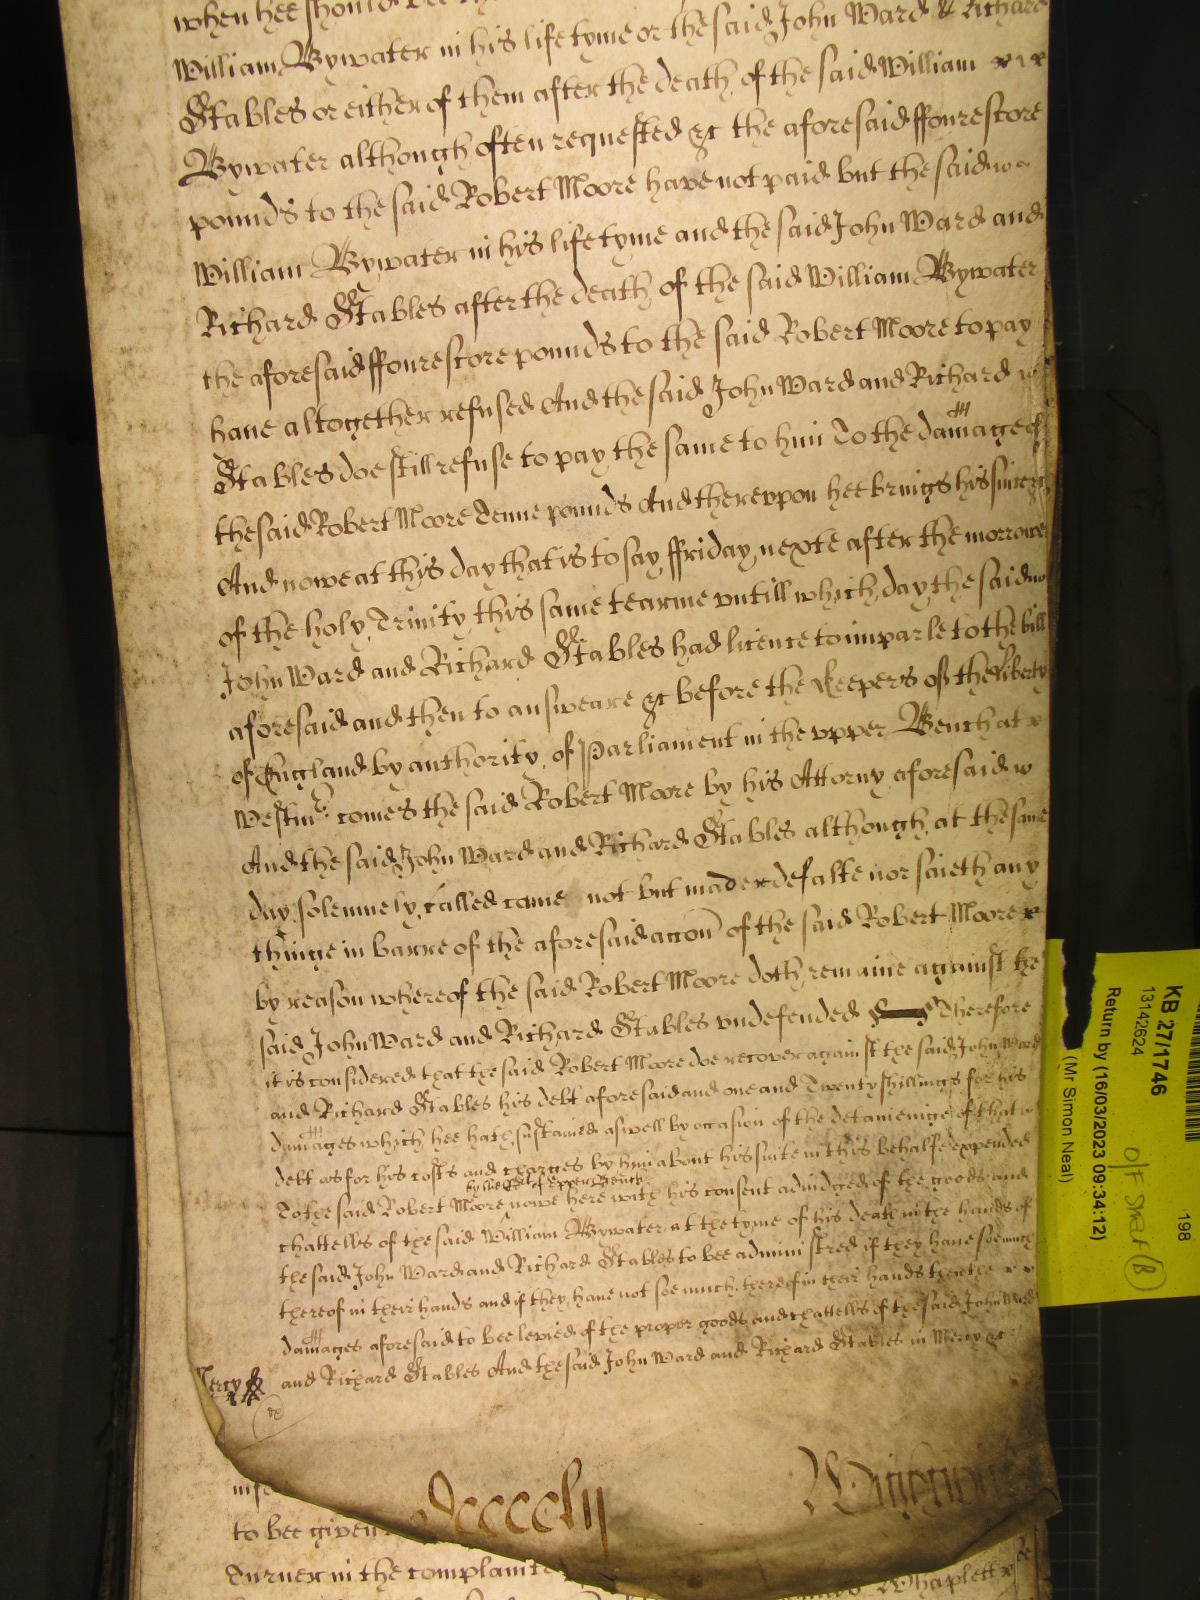 when hee should bee
William Bywater in his life tyme or the said John Ward & Richard
Stables or either of them after the death of the said William
Bywater although often requested &c the aforesaid ffourescore
pounds to the said Robert Moore have not paid but the said
William Bywater in his life tyme and the said John Ward and
Richard Stables after the death of the said William Bywater
the aforesaid ffourescore pounds to the said Robert Moore to pay
have altogether refused And the said John Ward and Richard
Stables doe still refuse to pay the same to him To the damage of
the said Robert Moore Tenne pounds And therevpon hee brings his suite &c
And nowe at this day that is to say ffriday nexte after the morrowe
of the holy Trinity this same tearme vntill which day the said
John Ward and Richard Stables had licence to imparle to the bill
aforesaid and then to answeare &c before the Keepers of the liberty
of England by authority of Parliament in the vpper Bench at
Westmr comes the said Robert Moore by his Attorny aforesaid
And the said John Ward and Richard Stables although at the same
day solemnely called came not but made defalte nor saieth any
thinge in barre of the aforesaid accon of the said Robert Moore
by reason whereof the said Robert Moore doth remaine against the
said John Ward and Richard Stables vndefended Therefore
it is considered that the said Robert Moore doe recover against the said John Ward
and Richard Stables his debt aforesaid and one and Twenty shillings for his
damages which hee hath sustained aswell by occasion of the deteineinge of that
debt as for his costs and charges by him about his suite in this behalfe expended
To the said Robert Moore nowe here with his consent adiudged of the goods and
chattells of the said William Bywater at the tyme of his death in the hands of
the said John Ward and Richard Stables to bee administred if they have soe much
thereof in their hands and if they have not soe much thereof in their hands then the
damages aforesaid to bee levied of the proper goods and chattells of the said John Ward
Mercy and Richard Stables And the said John Ward and Richard Stables in Mercy &c
to bee given
Turner in the complainte
KB 27/1746
13142624
Return by (16/03/2023 09:34:12)
(Mr Simon Neal)
198